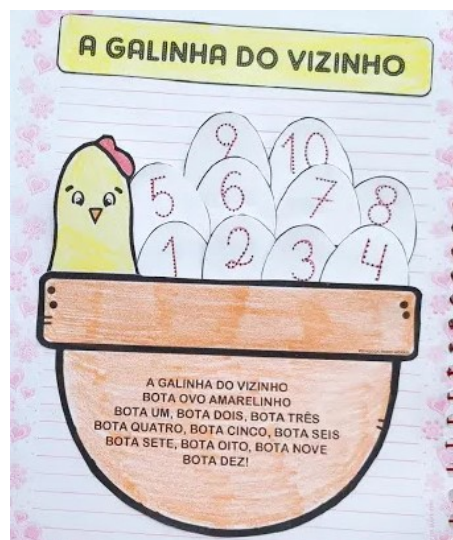 A GALINHA DO VIZINHO
9 10
5 6 7 8
1 2 3 4
A GALINHA DO VIZINHO
BOTA OVO AMARELINHO
BOTA UM, BOTA DOIS, BOTA TRÊS
BOTA QUATRO, BOTA CINCO, BOTA SEIS
BOTA SETE, BOTA OITO, BOTA NOVE
BOTA DEZ!